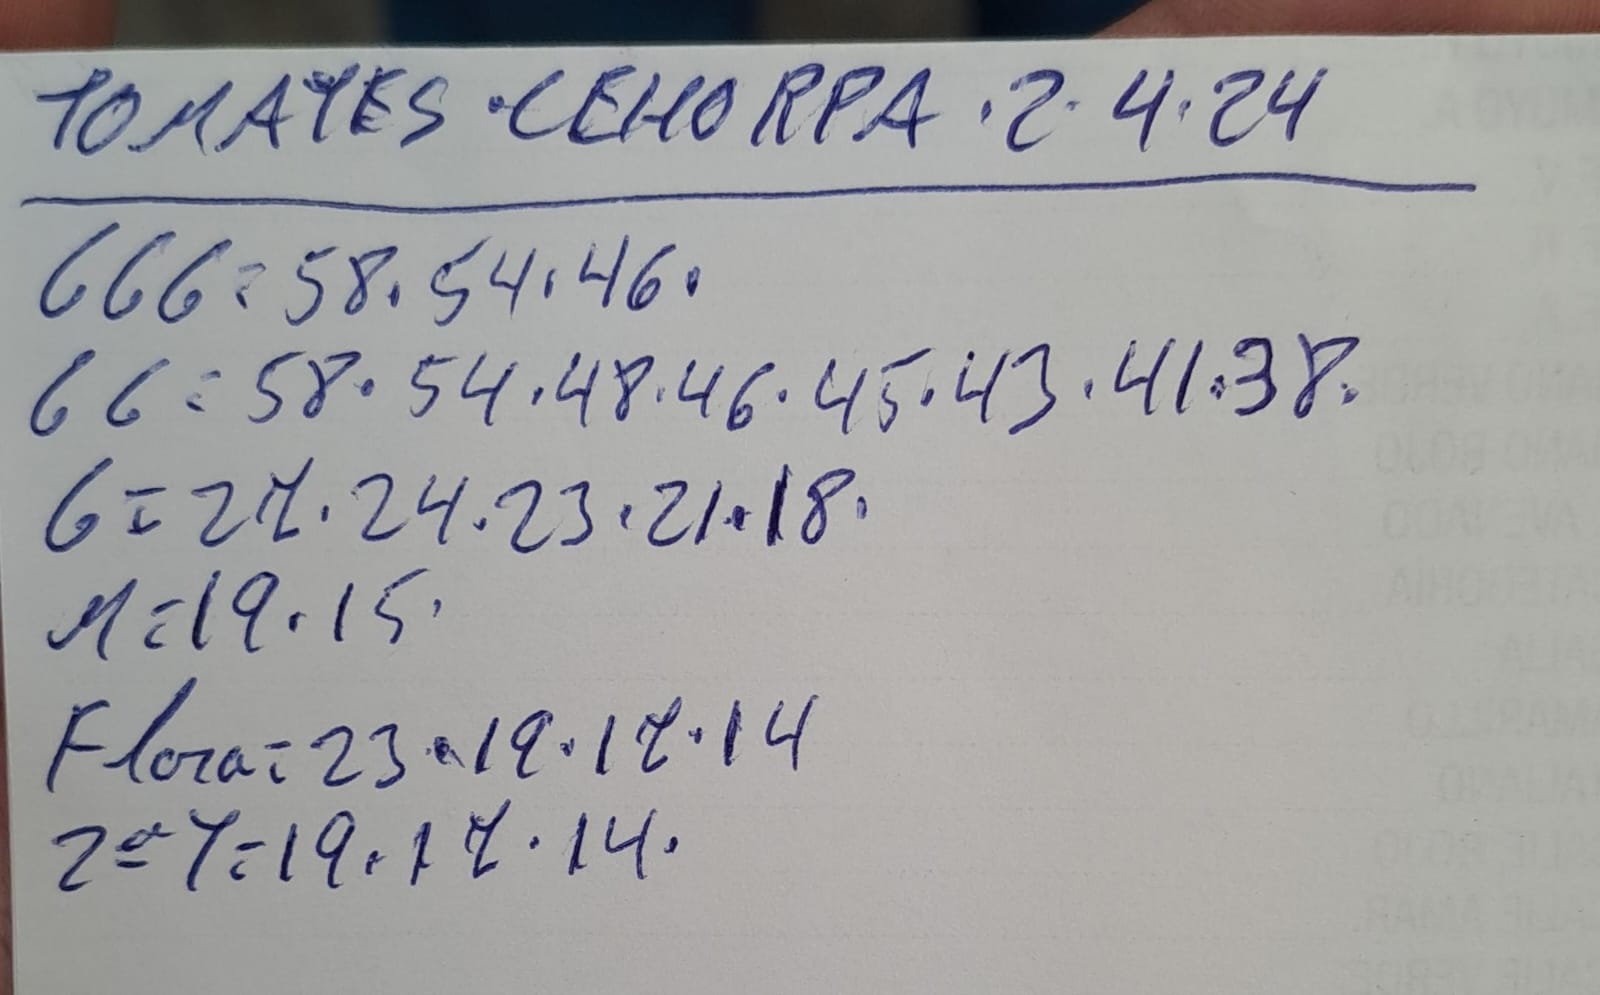 TOMATES · CEHORPA · 2 · 4 · 24
GGG = 58 · 54 · 46 ·
GG = 58 · 54 · 48 · 46 · 45 · 43 · 41 · 38 ·
G = 27 · 24 · 23 · 21 · 18 ·
M = 19 · 15 ·
Flora = 23 · 19 · 17 · 14
2ª T = 19 · 17 · 14 ·